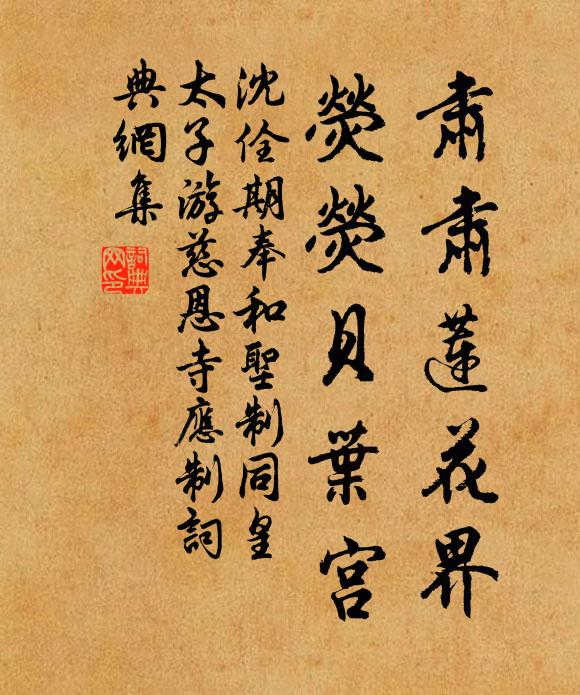 肅肅蓮花界
熒熒貝葉宮
沈佺期奉和聖制同皇
太子游慈恩寺應制詞
典網集
詞典
网印